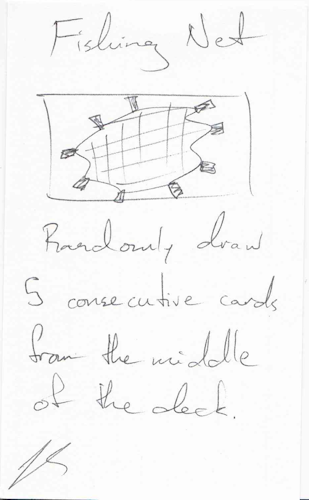 Fishing Net
Randomly draw
5 consecutive cards
from the middle
of the deck.